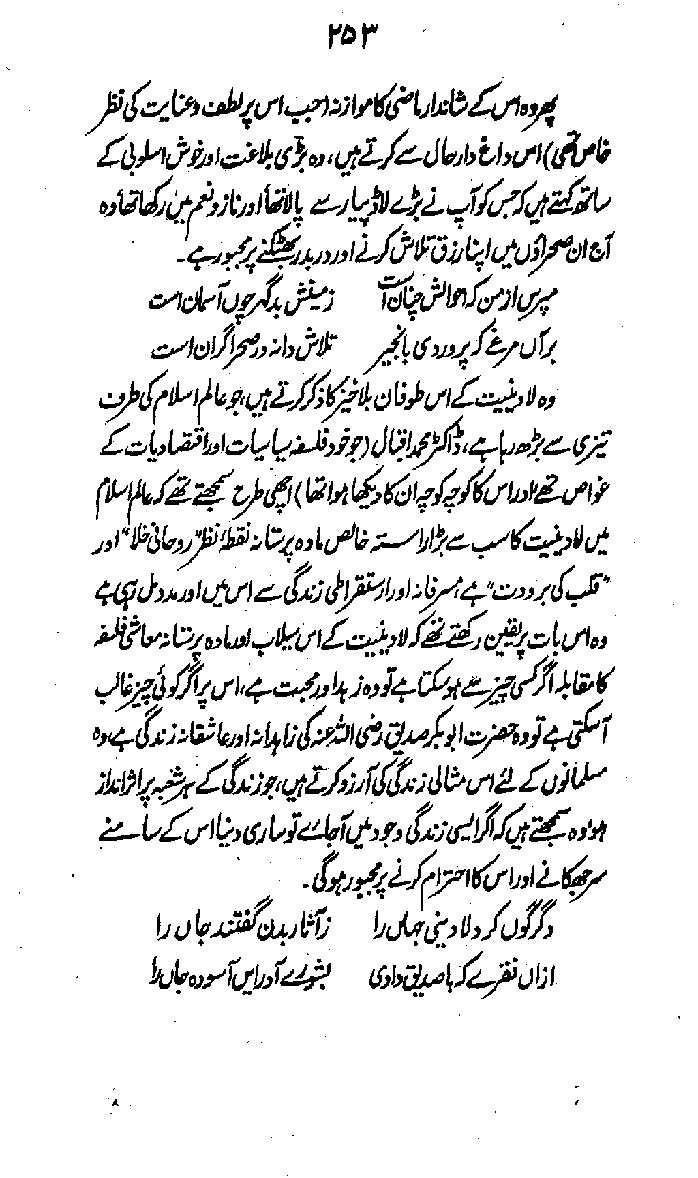 ۲۵۳
پھر وہ اس کے شاندار ماضی کا موازنہ (جب اس پر لطف و عنایت کی نظر
خاص تھی) اس داغ دار حال سے کرتے ہیں، وہ بڑی بلاغت اور خوش اسلوبی کے
ساتھ کہتے ہیں کہ جس کو آپ نے بڑے لاڈ پیار سے پالا تھا اور ناز و نعم میں رکھا تھا وہ
آج ان صحراؤں میں اپنا رزق تلاش کرنے اور در بدر بھٹکنے پر مجبور ہے۔
مپرس از من کہ احوالش چنان است زمینش بد گہر چوں آسمان است
برآں مرغے کہ پروردی بانجیر تلاش دانہ در صحرا گران است
وہ لادینیت کے اس طوفان بلاخیز کا ذکر کرتے ہیں، جو عالم اسلام کی طرف
تیزی سے بڑھ رہا ہے، ڈاکٹر محمد اقبال (جو خود فلسفہ سیاسیات اور اقتصادیات کے
غواص تھے اور اس کا کوچہ کوچہ ان کا دیکھا ہوا تھا) اچھی طرح سمجھتے تھے کہ عالم اسلام
میں لادینیت کا سب سے بڑا راستہ خالص مادہ پرستانہ نقطۂ نظر "روحانی خلا" اور
"قلب کی برودت" ہے، مسرفانہ اور ارستقراطی زندگی سے اس میں اور مدد مل رہی ہے
وہ اس بات پر یقین رکھتے تھے کہ لادینیت کے اس سیلاب اور مادہ پرستانہ معاشی فلسفہ
کا مقابلہ اگر کسی چیز سے ہو سکتا ہے تو وہ زہد اور محبت ہے، اس پر اگر کوئی چیز غالب
آ سکتی ہے تو وہ حضرت ابوبکر صدیق رضی اللہ عنہ کی زاہدانہ اور عاشقانہ زندگی ہے، وہ
مسلمانوں کے لئے اس مثالی زندگی کی آرزو کرتے ہیں، جو زندگی کے ہر شعبہ پر اثر انداز
ہو، وہ سمجھتے ہیں کہ اگر ایسی زندگی وجود میں آجائے تو ساری دنیا اس کے سامنے
سر جھکانے اور اس کا احترام کرنے پر مجبور ہوگی۔
دگرگوں کرد لادینی جہاں را ز آثار بدن گفتند جاں را
ازاں فقرے کہ با صدیق دادی بشورے آور ایں آسودہ جاں را